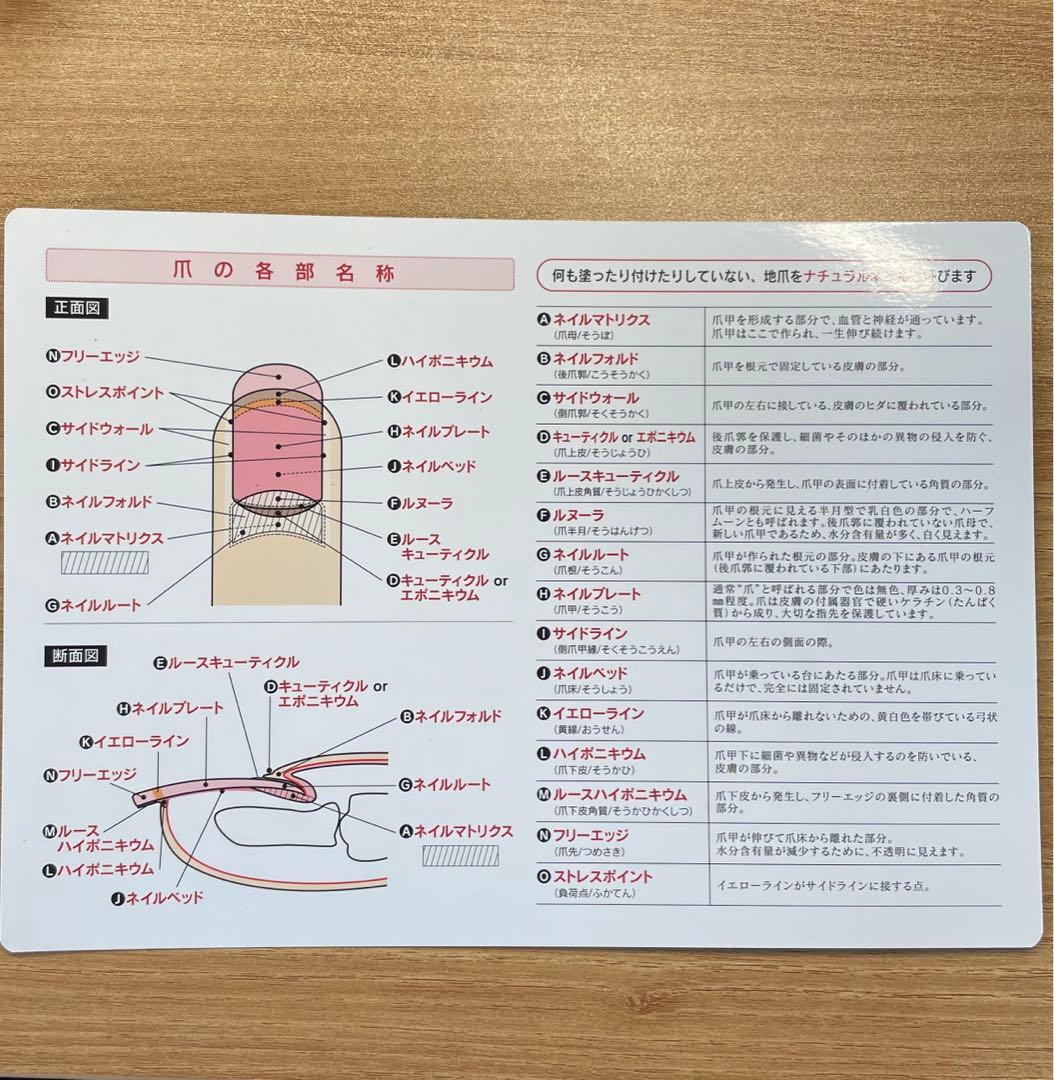 爪の各部名称
正面図
Nフリーエッジ
Oストレスポイント
Cサイドウォール
Iサイドライン
Bネイルフォルド
Aネイルマトリクス
Gネイルルート
Lハイポニキウム
Kイエローライン
Hネイルプレート
Jネイルベッド
Fルヌーラ
Eルース
キューティクル
Dキューティクル or
エポニキウム
断面図
Eルースキューティクル
Dキューティクル or
エポニキウム
Hネイルプレート
Bネイルフォルド
Kイエローライン
Nフリーエッジ
Gネイルルート
Mルース
ハイポニキウム
Aネイルマトリクス
Lハイポニキウム
Jネイルベッド
何も塗ったり付けたりしていない、地爪をナチュラル びます
Aネイルマトリクス
(爪母/そうぼ)
爪甲を形成する部分で、血管と神経が通っています。
爪甲はここで作られ、一生伸び続けます。
Bネイルフォルド
(後爪郭/こうそうかく)
爪甲を根元で固定している皮膚の部分。
Cサイドウォール
(側爪郭/そくそうかく)
爪甲の左右に接している、皮膚のヒダに覆われている部分。
Dキューティクル or エポニキウム
(爪上皮/そうじょうひ)
後爪郭を保護し、細菌やそのほかの異物の侵入を防ぐ、
皮膚の部分。
Eルースキューティクル
(爪上皮角質/そうじょうひかくしつ)
爪上皮から発生し、爪甲の表面に付着している角質の部分。
Fルヌーラ
(爪半月/そうはんげつ)
爪甲の根元に見える半月型で乳白色の部分で、ハーフ
ムーンとも呼ばれます。後爪郭に覆われていない爪母で、
新しい爪甲であるため、水分含有量が多く、白く見えます。
Gネイルルート
(爪根/そうこん)
爪甲が作られた根元の部分。皮膚の下にある爪甲の根元
(後爪郭に覆われている下部)にあたります。
Hネイルプレート
(爪甲/そうこう)
通常“爪”と呼ばれる部分で色は無色、厚みは0.3～0.8
㎜程度。爪は皮膚の付属器官で硬いケラチン(たんぱく
質)から成り、大切な指先を保護しています。
Iサイドライン
(側爪甲縁/そくそうこうえん)
爪甲の左右の側面の際。
Jネイルベッド
(爪床/そうしょう)
爪甲が乗っている台にあたる部分。爪甲は爪床に乗ってい
るだけで、完全には固定されていません。
Kイエローライン
(黄線/おうせん)
爪甲が爪床から離れないための、黄白色を帯びている弓状
の線。
Lハイポニキウム
(爪下皮/そうかひ)
爪甲下に細菌や異物などが侵入するのを防いでいる、
皮膚の部分。
Mルースハイポニキウム
(爪下皮角質/そうかひかくしつ)
爪下皮から発生し、フリーエッジの裏側に付着した角質の
部分。
Nフリーエッジ
(爪先/つめさき)
爪甲が伸びて爪床から離れた部分。
水分含有量が減少するために、不透明に見えます。
Oストレスポイント
(負荷点/ふかてん)
イエローラインがサイドラインに接する点。